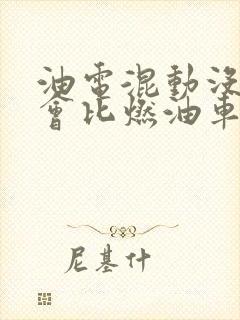 油電混動沒
會比燃油車
尼基什